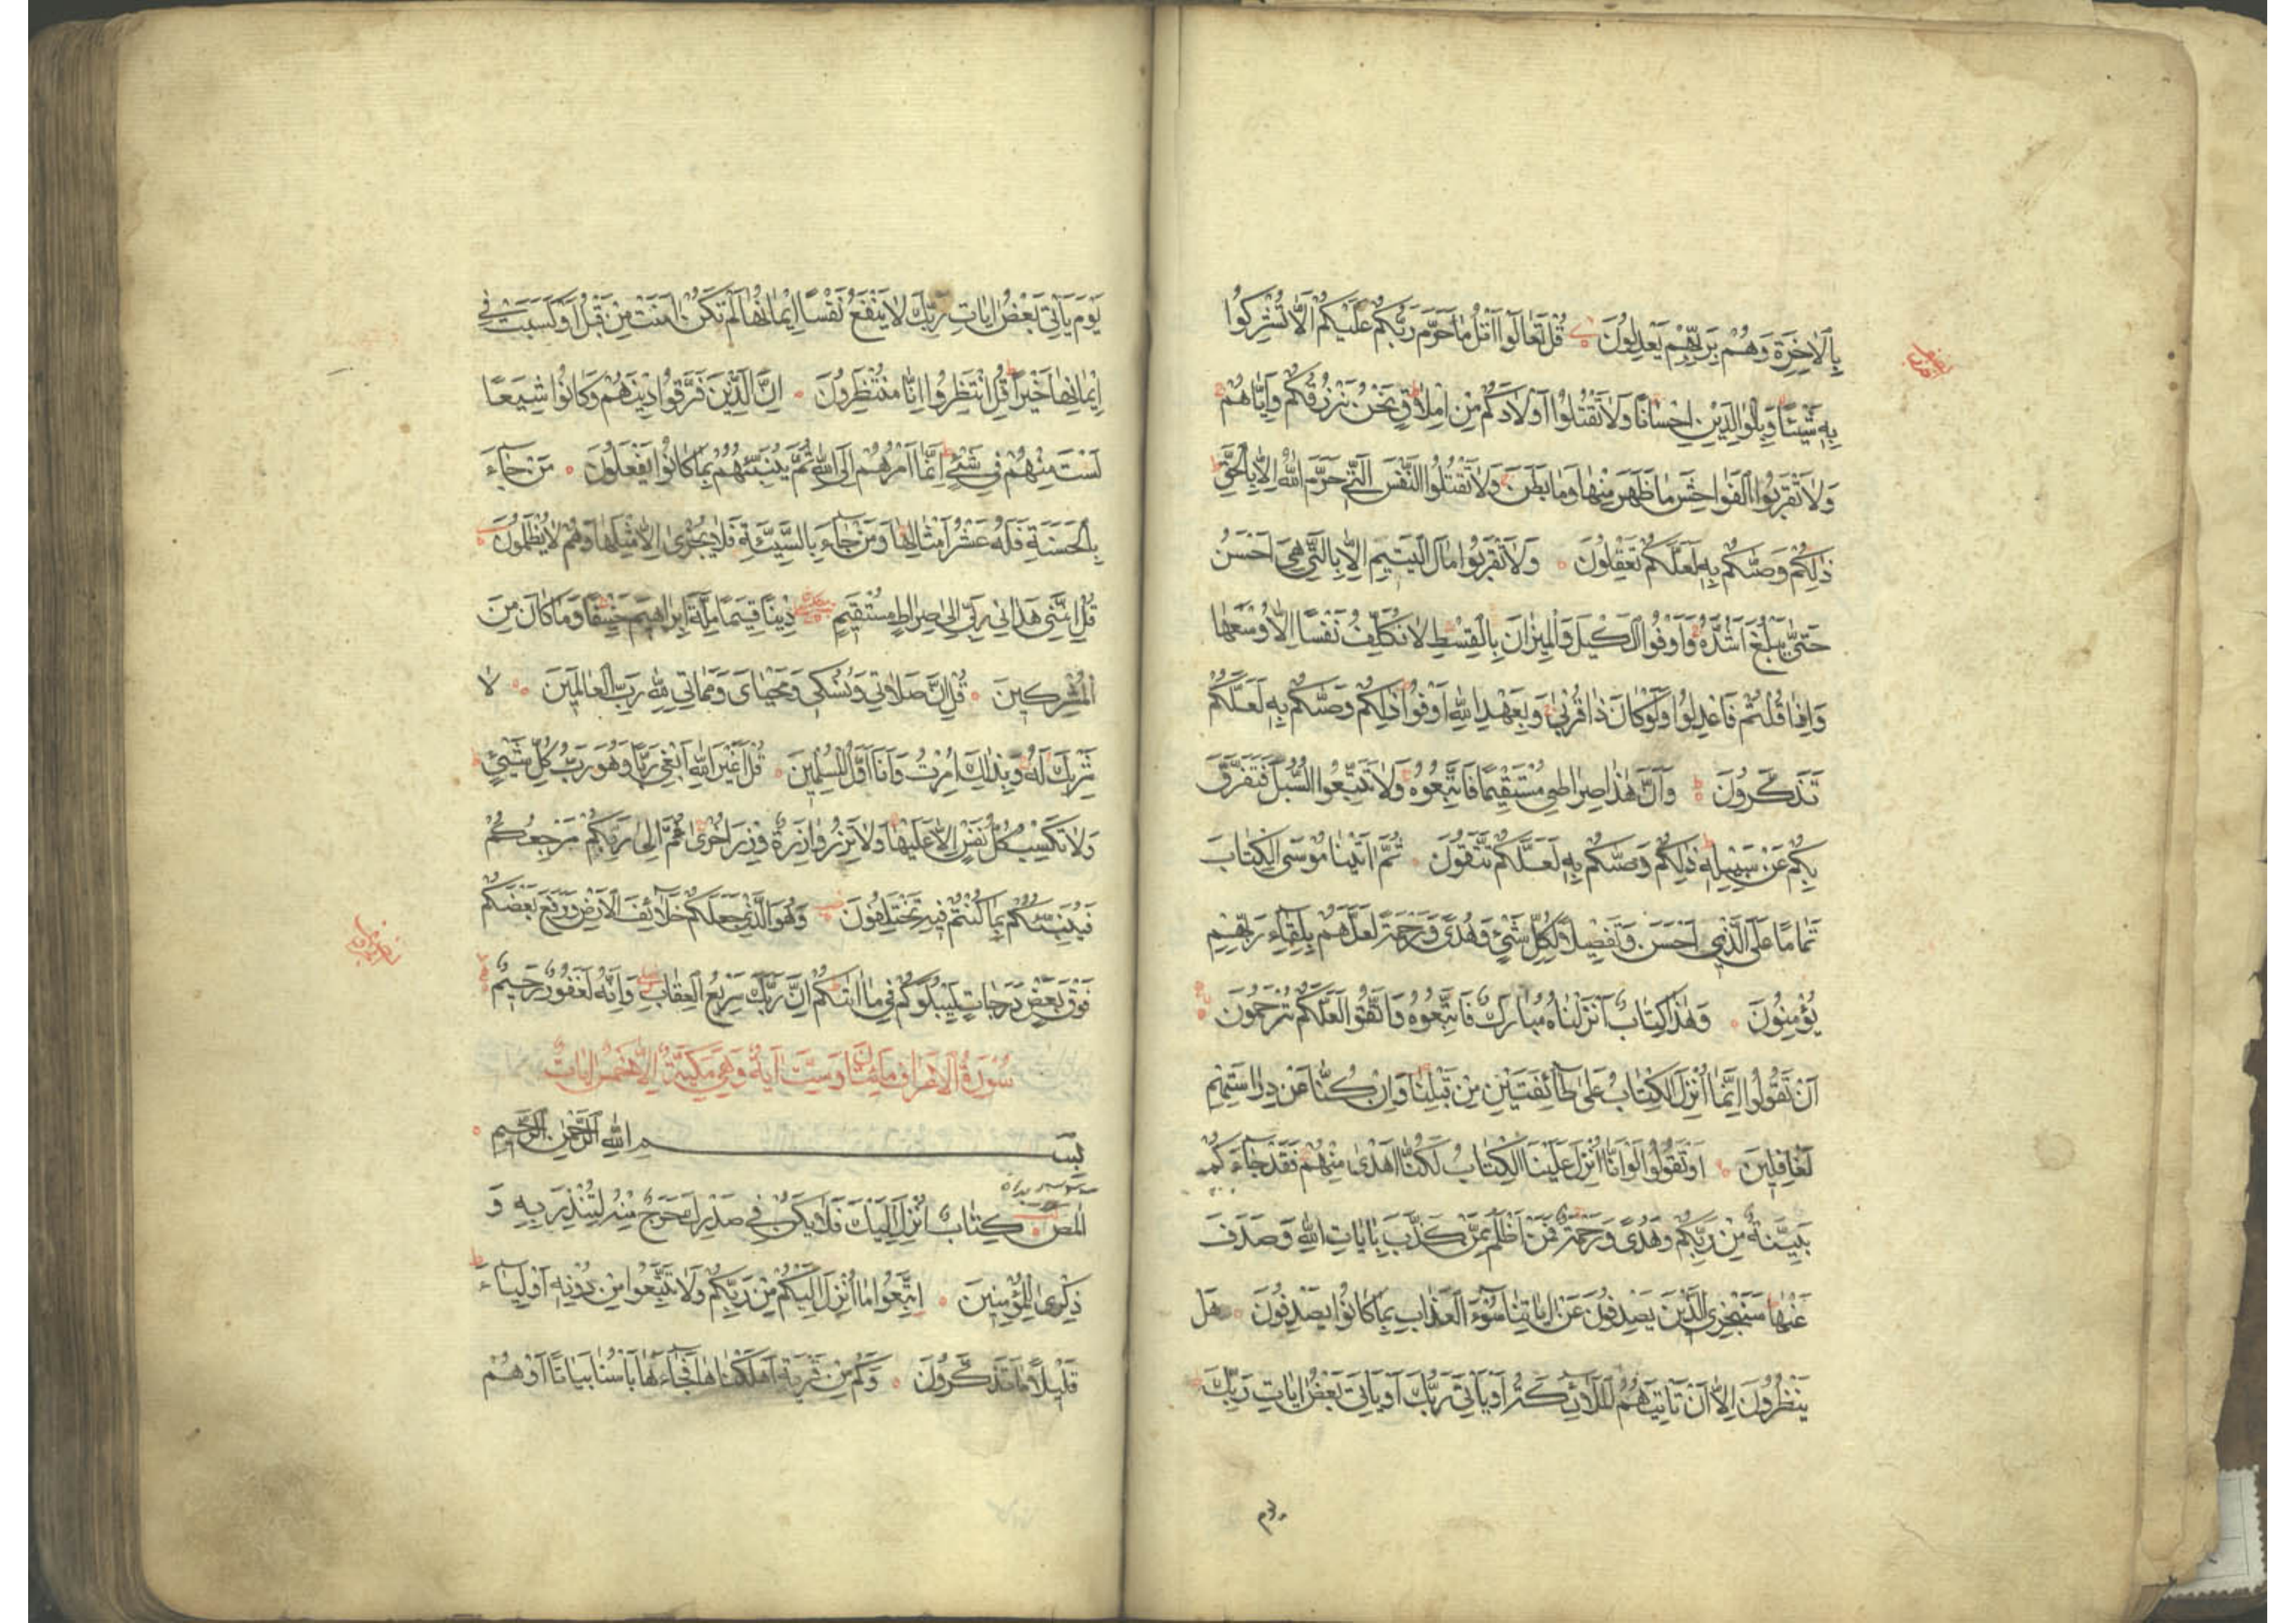 بِالْاٰخِرَةِ وَهُمْ بِرَبِّهِمْ يَعْدِلُونَ قُلْ تَعَالَوْا اَتْلُ مَا حَرَّمَ رَبُّكُمْ عَلَيْكُمْ اَلَّا تُشْرِكُوا
بِهِ شَيْئًا وَبِالْوَالِدَيْنِ اِحْسَانًا وَلَا تَقْتُلُوا اَوْلَادَكُمْ مِنْ اِمْلَاقٍ نَحْنُ نَرْزُقُكُمْ وَاِيَّاهُمْ
وَلَا تَقْرَبُوا الْفَوَاحِشَ مَا ظَهَرَ مِنْهَا وَمَا بَطَنَ وَلَا تَقْتُلُوا النَّفْسَ الَّتِي حَرَّمَ اللّٰهُ اِلَّا بِالْحَقِّ
ذٰلِكُمْ وَصّٰيكُمْ بِهِ لَعَلَّكُمْ تَعْقِلُونَ وَلَا تَقْرَبُوا مَالَ الْيَتِيمِ اِلَّا بِالَّتِي هِيَ اَحْسَنُ
حَتّٰى يَبْلُغَ اَشُدَّهُ وَاَوْفُوا الْكَيْلَ وَالْمِيزَانَ بِالْقِسْطِ لَا نُكَلِّفُ نَفْسًا اِلَّا وُسْعَهَا
وَاِذَا قُلْتُمْ فَاعْدِلُوا وَلَوْ كَانَ ذَا قُرْبٰى وَبِعَهْدِ اللّٰهِ اَوْفُوا ذٰلِكُمْ وَصّٰيكُمْ بِهِ لَعَلَّكُمْ
تَذَكَّرُونَ وَاَنَّ هٰذَا صِرَاطِي مُسْتَقِيمًا فَاتَّبِعُوهُ وَلَا تَتَّبِعُوا السُّبُلَ فَتَفَرَّقَ
بِكُمْ عَنْ سَبِيلِهِ ذٰلِكُمْ وَصّٰيكُمْ بِهِ لَعَلَّكُمْ تَتَّقُونَ ثُمَّ اٰتَيْنَا مُوسَى الْكِتَابَ
تَمَامًا عَلَى الَّذِي اَحْسَنَ وَتَفْصِيلًا لِكُلِّ شَيْءٍ وَهُدًى وَرَحْمَةً لَعَلَّهُمْ بِلِقَاءِ رَبِّهِمْ
يُؤْمِنُونَ وَهٰذَا كِتَابٌ اَنْزَلْنَاهُ مُبَارَكٌ فَاتَّبِعُوهُ وَاتَّقُوا لَعَلَّكُمْ تُرْحَمُونَ
اَنْ تَقُولُوا اِنَّمَا اُنْزِلَ الْكِتَابُ عَلٰى طَائِفَتَيْنِ مِنْ قَبْلِنَا وَاِنْ كُنَّا عَنْ دِرَاسَتِهِمْ
لَغَافِلِينَ اَوْ تَقُولُوا لَوْ اَنَّا اُنْزِلَ عَلَيْنَا الْكِتَابُ لَكُنَّا اَهْدٰى مِنْهُمْ فَقَدْ جَاءَكُمْ
بَيِّنَةٌ مِنْ رَبِّكُمْ وَهُدًى وَرَحْمَةٌ فَمَنْ اَظْلَمُ مِمَّنْ كَذَّبَ بِاٰيَاتِ اللّٰهِ وَصَدَفَ
عَنْهَا سَنَجْزِي الَّذِينَ يَصْدِفُونَ عَنْ اٰيَاتِنَا سُوءَ الْعَذَابِ بِمَا كَانُوا يَصْدِفُونَ هَلْ
يَنْظُرُونَ اِلَّا اَنْ تَأْتِيَهُمُ الْمَلَائِكَةُ اَوْ يَأْتِيَ رَبُّكَ اَوْ يَأْتِيَ بَعْضُ اٰيَاتِ رَبِّكَ
يَوْمَ يَأْتِي بَعْضُ اٰيَاتِ رَبِّكَ لَا يَنْفَعُ نَفْسًا اِيمَانُهَا لَمْ تَكُنْ اٰمَنَتْ مِنْ قَبْلُ اَوْ كَسَبَتْ فِي
اِيمَانِهَا خَيْرًا قُلِ انْتَظِرُوا اِنَّا مُنْتَظِرُونَ اِنَّ الَّذِينَ فَرَّقُوا دِينَهُمْ وَكَانُوا شِيَعًا
لَسْتَ مِنْهُمْ فِي شَيْءٍ اِنَّمَا اَمْرُهُمْ اِلَى اللّٰهِ ثُمَّ يُنَبِّئُهُمْ بِمَا كَانُوا يَفْعَلُونَ مَنْ جَاءَ
بِالْحَسَنَةِ فَلَهُ عَشْرُ اَمْثَالِهَا وَمَنْ جَاءَ بِالسَّيِّئَةِ فَلَا يُجْزٰى اِلَّا مِثْلَهَا وَهُمْ لَا يُظْلَمُونَ
قُلْ اِنَّنِي هَدَانِي رَبِّي اِلٰى صِرَاطٍ مُسْتَقِيمٍ دِينًا قِيَمًا مِلَّةَ اِبْرَاهِيمَ حَنِيفًا وَمَا كَانَ مِنَ
الْمُشْرِكِينَ قُلْ اِنَّ صَلَاتِي وَنُسُكِي وَمَحْيَايَ وَمَمَاتِي لِلّٰهِ رَبِّ الْعَالَمِينَ لَا
شَرِيكَ لَهُ وَبِذٰلِكَ اُمِرْتُ وَاَنَا اَوَّلُ الْمُسْلِمِينَ قُلْ اَغَيْرَ اللّٰهِ اَبْغِي رَبًّا وَهُوَ رَبُّ كُلِّ شَيْءٍ
وَلَا تَكْسِبُ كُلُّ نَفْسٍ اِلَّا عَلَيْهَا وَلَا تَزِرُ وَازِرَةٌ وِزْرَ اُخْرٰى ثُمَّ اِلٰى رَبِّكُمْ مَرْجِعُكُمْ
فَيُنَبِّئُكُمْ بِمَا كُنْتُمْ فِيهِ تَخْتَلِفُونَ وَهُوَ الَّذِي جَعَلَكُمْ خَلَائِفَ الْاَرْضِ وَرَفَعَ بَعْضَكُمْ
فَوْقَ بَعْضٍ دَرَجَاتٍ لِيَبْلُوَكُمْ فِي مَا اٰتٰيكُمْ اِنَّ رَبَّكَ سَرِيعُ الْعِقَابِ وَاِنَّهُ لَغَفُورٌ رَحِيمٌ
سُورَةُ الْاَعْرَافِ مِائَتَانِ وَسِتُّ اٰيَةً وَهِيَ مَكِّيَّةٌ اِلَّا خَمْسَ اٰيَاتٍ
بِسْمِ اللّٰهِ الرَّحْمٰنِ الرَّحِيمِ
الٓمٓصٓ كِتَابٌ اُنْزِلَ اِلَيْكَ فَلَا يَكُنْ فِي صَدْرِكَ حَرَجٌ مِنْهُ لِتُنْذِرَ بِهِ وَ
ذِكْرٰى لِلْمُؤْمِنِينَ اِتَّبِعُوا مَا اُنْزِلَ اِلَيْكُمْ مِنْ رَبِّكُمْ وَلَا تَتَّبِعُوا مِنْ دُونِهِ اَوْلِيَاءَ
قَلِيلًا مَا تَذَكَّرُونَ وَكَمْ مِنْ قَرْيَةٍ اَهْلَكْنَاهَا فَجَاءَهَا بَأْسُنَا بَيَاتًا اَوْ هُمْ